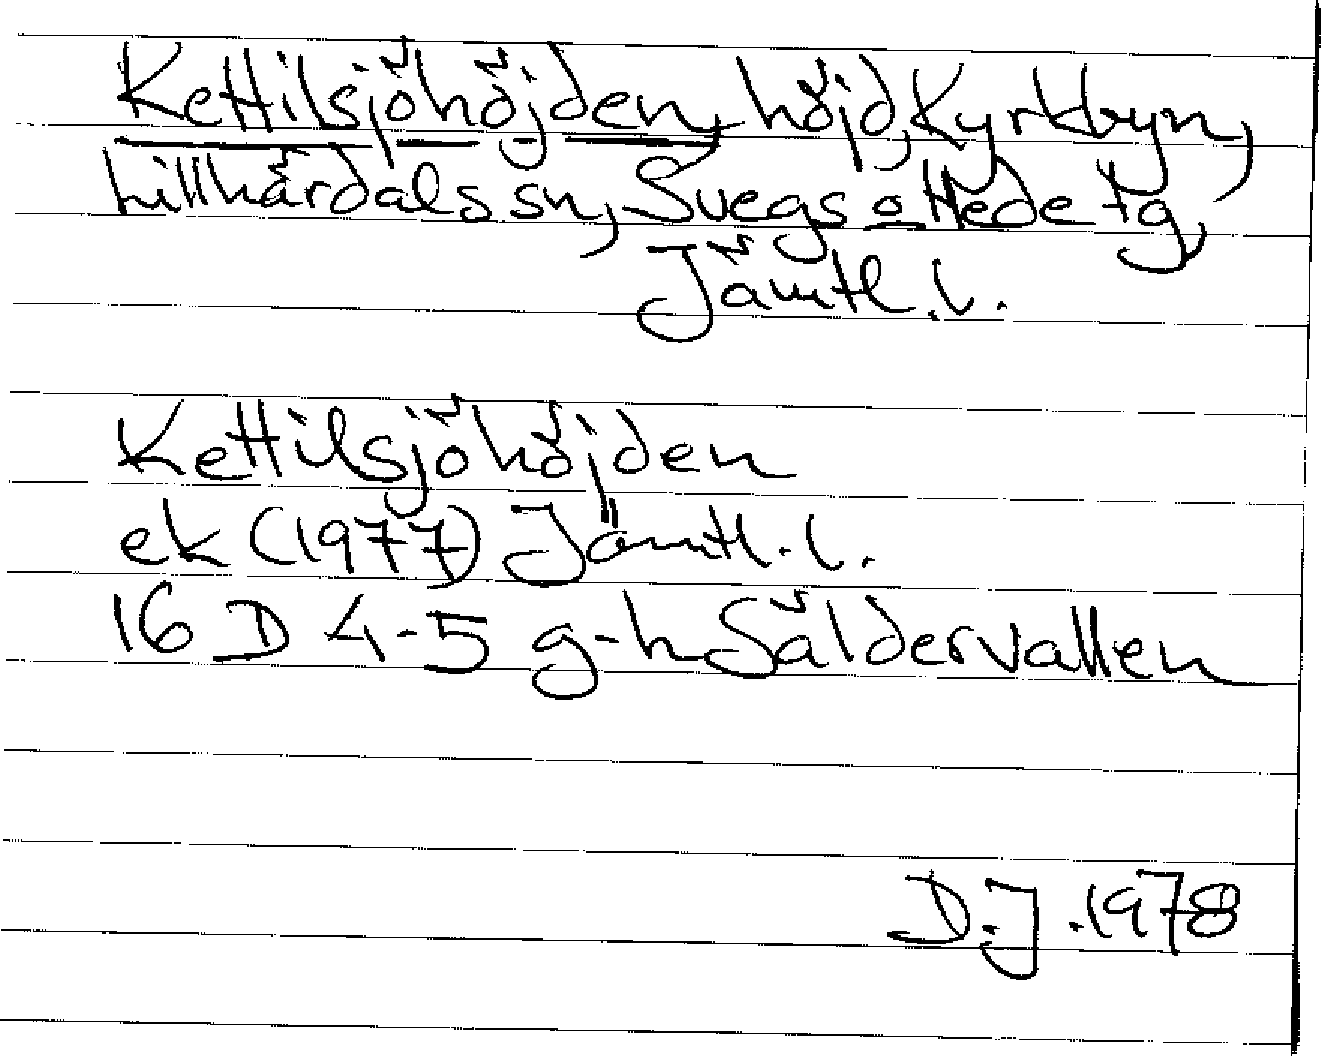 Kettilsjöhöjden, höjd, Kyrkbyn,
Lillhärdals sn, Svegs o Hede tg,
Jämtl. l.
Kettilsjöhöjden
ek (1977) Jämtl. l.
16 D 4-5 g-h Säldervallen
D.J. 1978